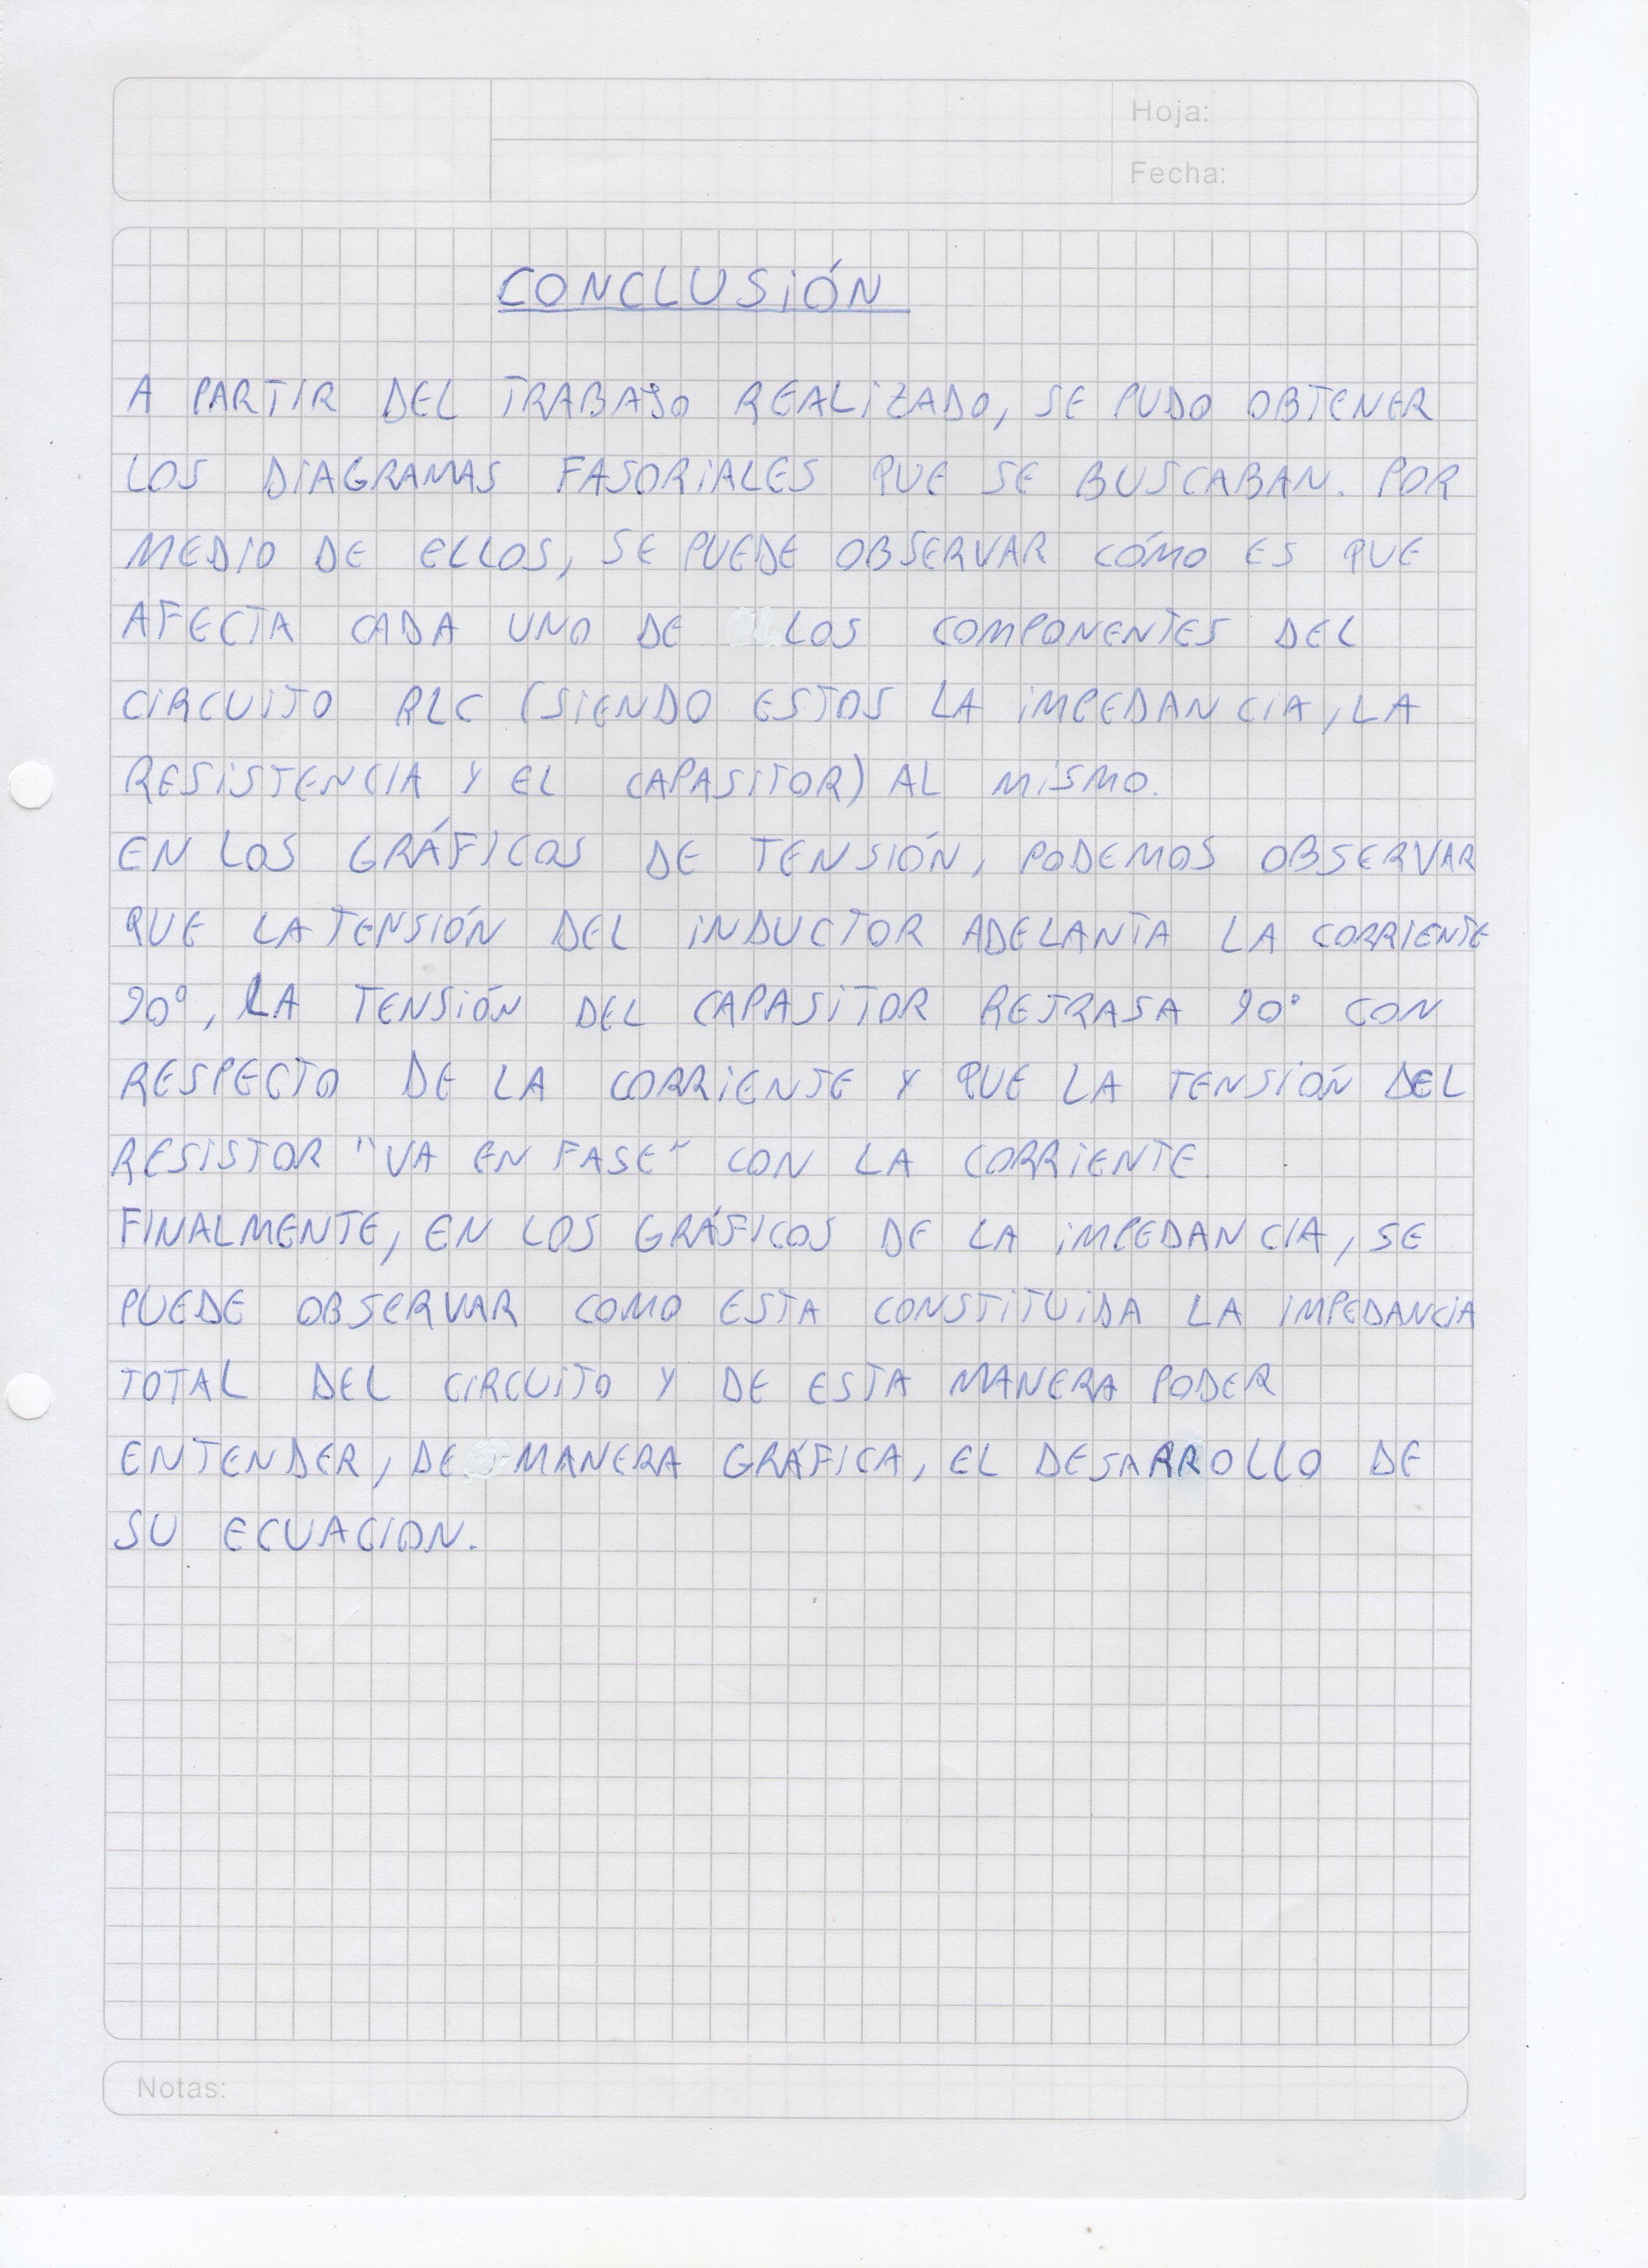 Hoja:
Fecha:
CONCLUSIÓN
A PARTIR DEL TRABAJO REALIZADO, SE PUDO OBTENER
LOS DIAGRAMAS FASORIALES QUE SE BUSCABAN. POR
MEDIO DE ELLOS, SE PUEDE OBSERVAR CÓMO ES QUE
AFECTA CADA UNO DE LOS COMPONENTES DEL
CIRCUITO RLC (SIENDO ESTOS LA IMPEDANCIA, LA
RESISTENCIA Y EL CAPASITOR) AL MISMO.
EN LOS GRÁFICOS DE TENSIÓN, PODEMOS OBSERVAR
QUE LA TENSIÓN DEL INDUCTOR ADELANTA LA CORRIENTE
90°, LA TENSIÓN DEL CAPASITOR RETRASA 90° CON
RESPECTO DE LA CORRIENTE Y QUE LA TENSIÓN DEL
RESISTOR "VA EN FASE" CON LA CORRIENTE.
FINALMENTE, EN LOS GRÁFICOS DE LA IMPEDANCIA, SE
PUEDE OBSERVAR COMO ESTA CONSTITUIDA LA IMPEDANCIA
TOTAL DEL CIRCUITO Y DE ESTA MANERA PODER
ENTENDER, DE MANERA GRÁFICA, EL DESARROLLO DE
SU ECUACION.
Notas: